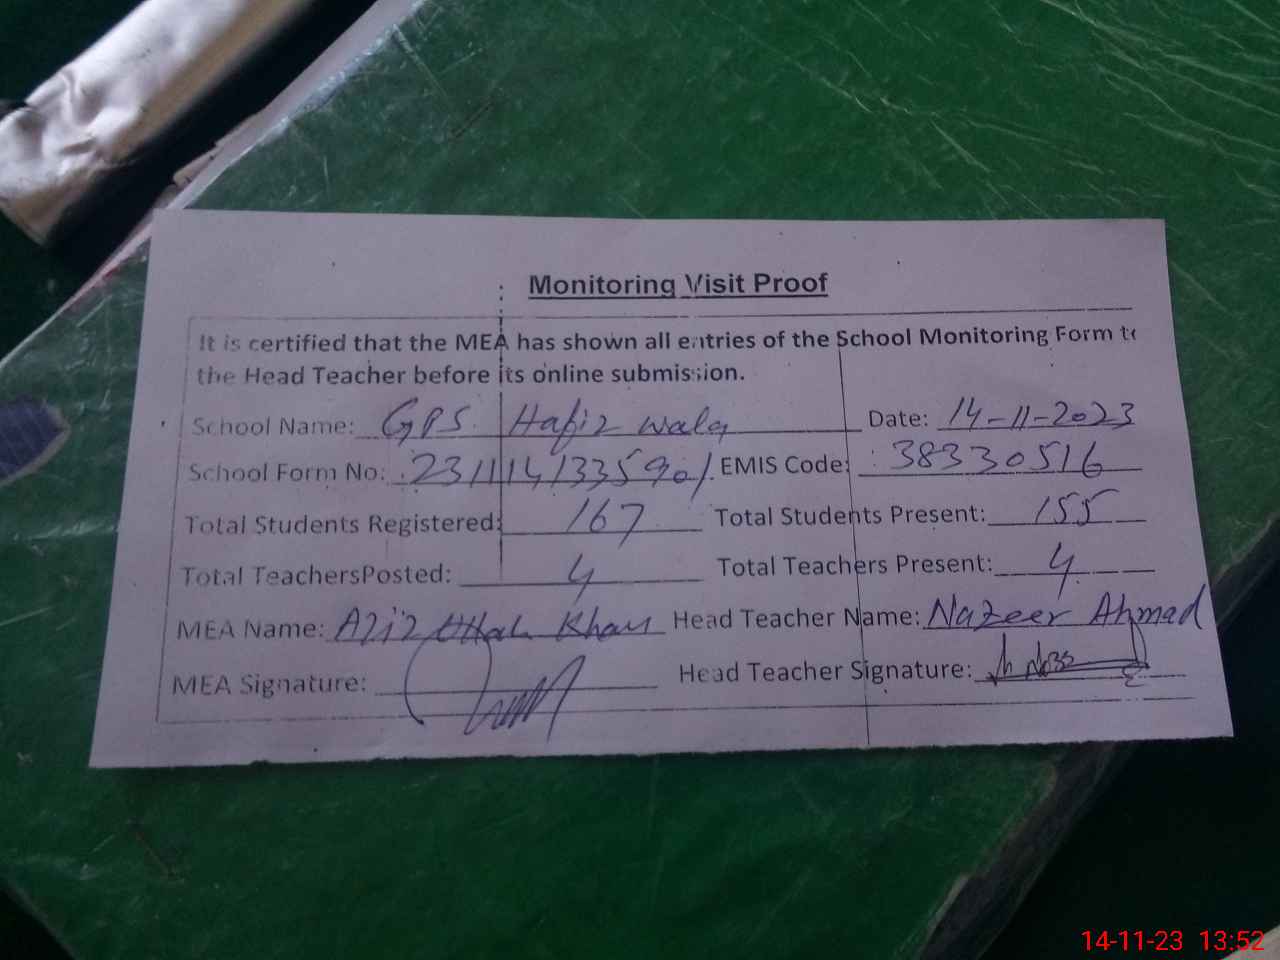 Monitoring Visit Proof
It is certified that the MEA has shown all entries of the School Monitoring Form to
the Head Teacher before its online submission.
School Name: GPS Hafiz wala Date: 14-11-2023
School Form No: 2311141335901 EMIS Code: 38330516
Total Students Registered: 167 Total Students Present: 155
Total TeachersPosted: 4 Total Teachers Present: 4
MEA Name: Aziz Ullah Khan Head Teacher Name: Nazeer Ahmad
MEA Signature: Head Teacher Signature:
14-11-23 13:52